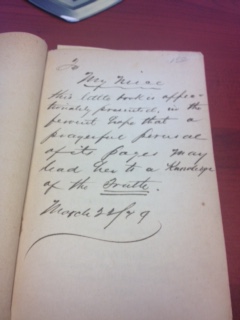 To
My Neice
this little book is affec-
tionately presented, in the
fervent hope that a
prayerful perusal
of its pages may
lead her to a Knowledge
of the Truth.
March 22/79